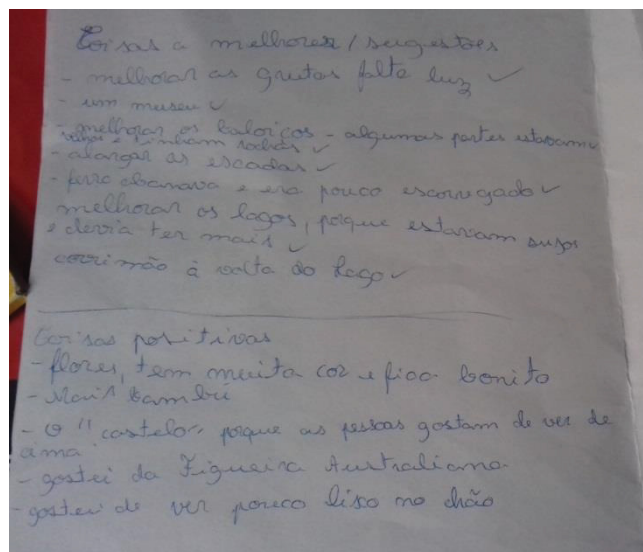 Coisas a melhorar/sugestões
- melhorar as grutas falta luz ✓
- um museu ✓
- melhorar os baloiços - algumas partes estavam
velhas e tinham rachas ✓
- alargar as escadas ✓
- ferro abanava e era pouco escorregado ✓
melhorar os lagos, porque estavam sujos
e devia ter mais ✓
corrimão à volta do lago ✓
Coisas positivas
- flores, tem muita cor e fica bonito
- Mais bambu
- O "castelo" porque as pessoas gostam de ver de
cima
- gostei da Figueira Australiana
- gostei de ver pouco lixo no chão